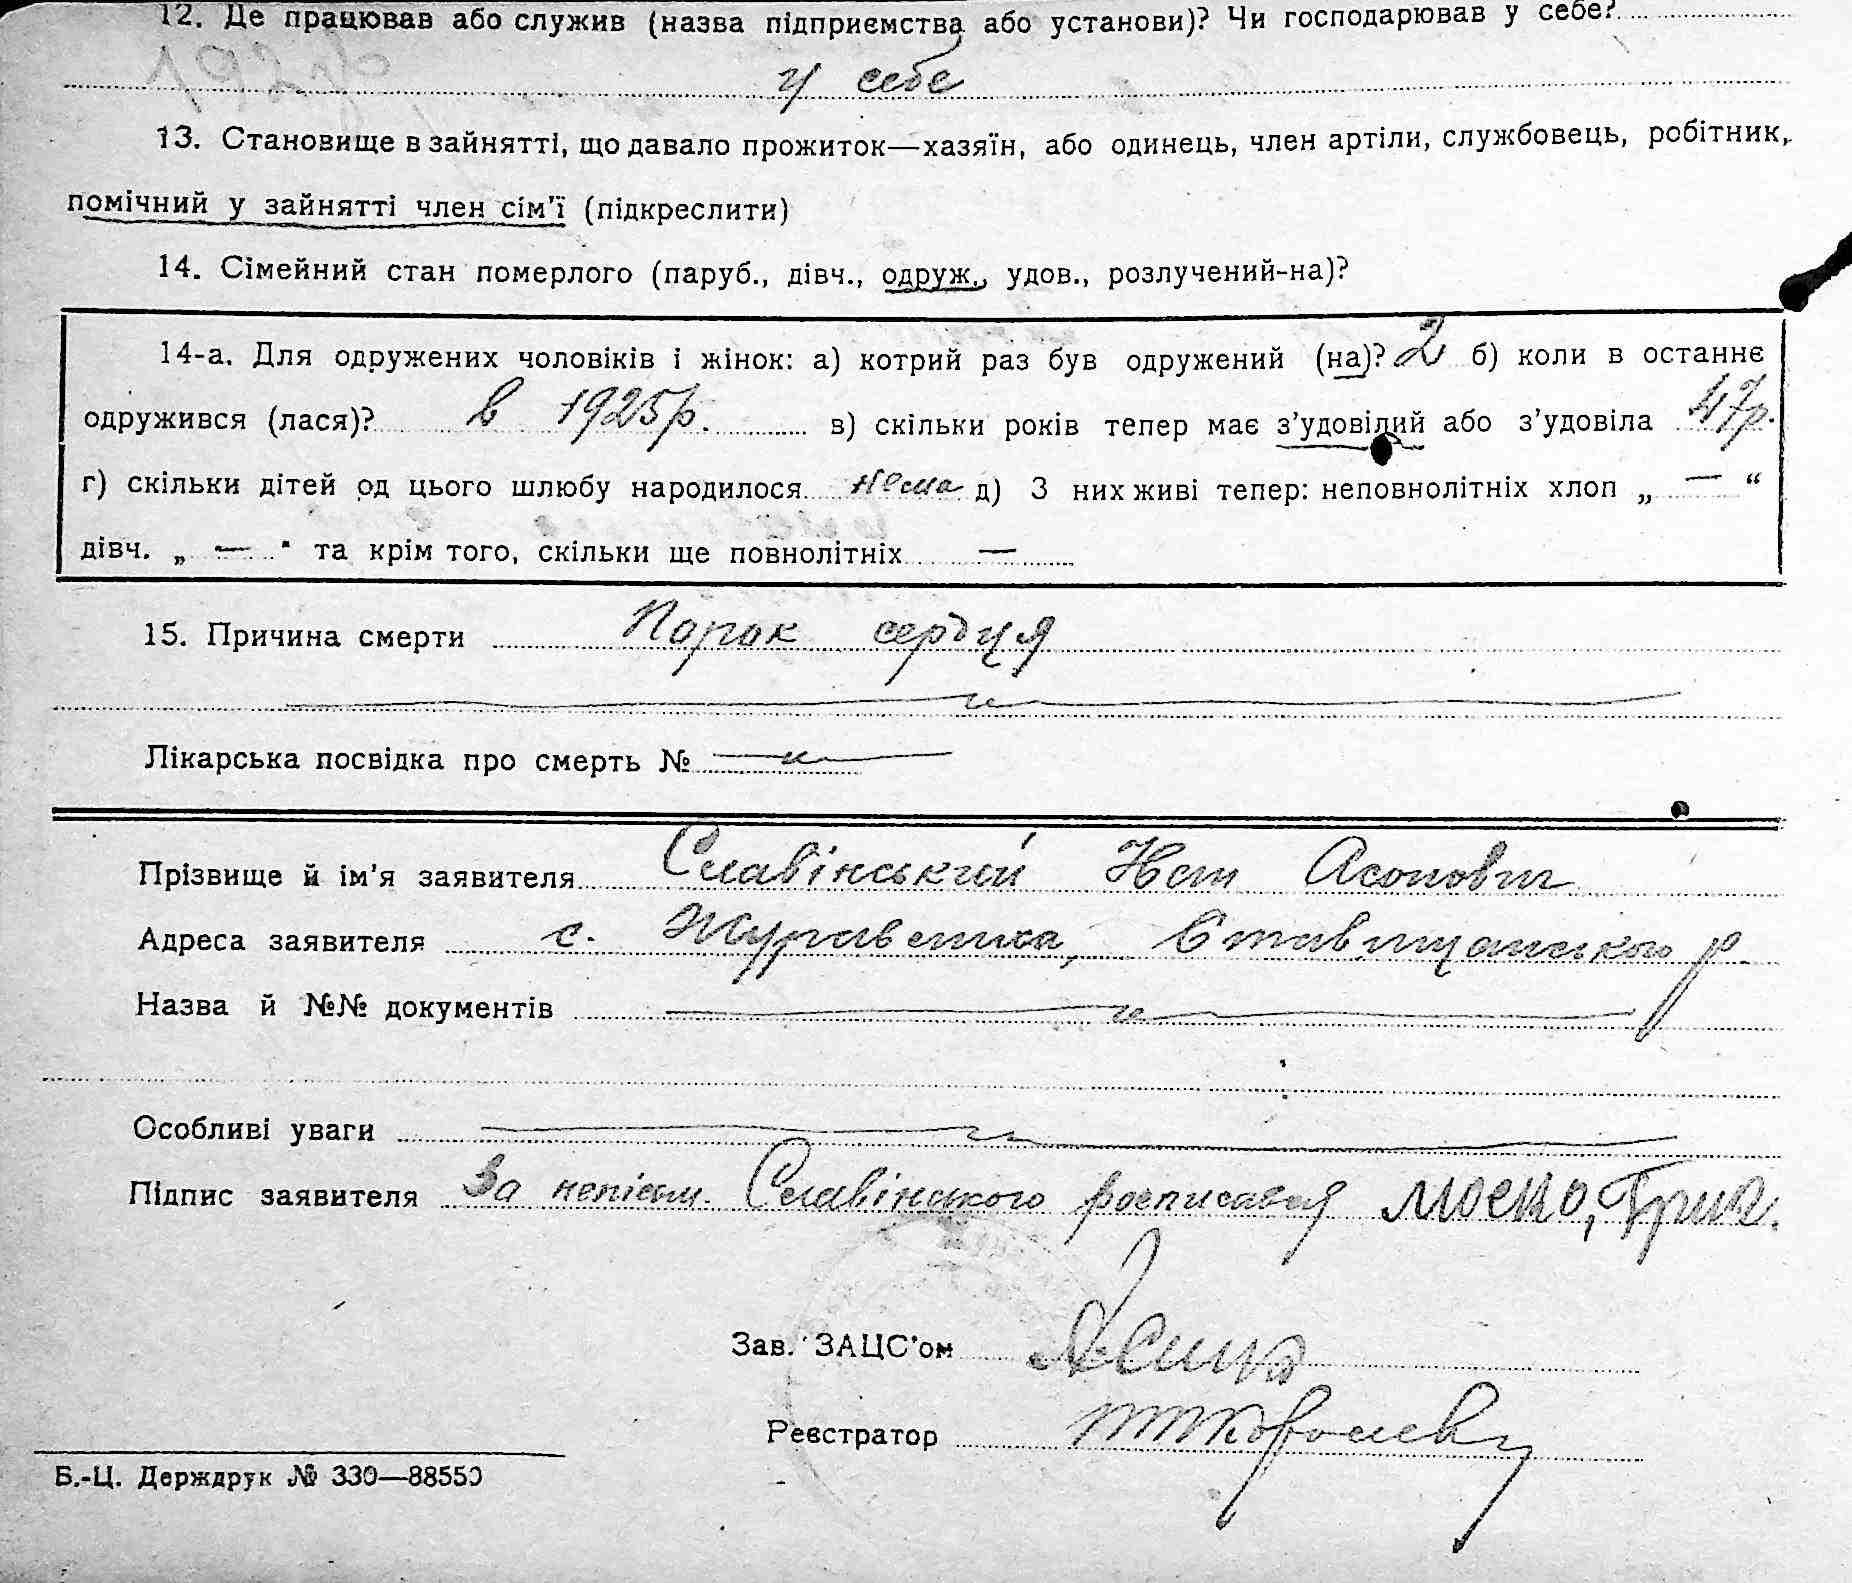 12. Де працював або служив (назва підприємства або установи)? Чи господарював у себе?
у себе
13. Становище в зайнятті, що давало прожиток—хазяїн, або одинець, член артіли, службовець, робітник,
помічний у зайнятті член сім'ї (підкреслити)
14. Сімейний стан померлого (паруб., дівч., одруж., удов., розлучений-на)?
14-а. Для одружених чоловіків і жінок: а) котрий раз був одружений (на)? 2 б) коли в останнє
одружився (лася)? в 1925р. в) скільки років тепер має з'удовілий або з'удовіла 47р.
г) скільки дітей од цього шлюбу народилося нема д) З них живі тепер: неповнолітніх хлоп „ — “
дівч. „ — " та крім того, скільки ще повнолітніх —
15. Причина смерти Порок сердця
Лікарська посвідка про смерть №
Прізвище й ім'я заявителя Славінський
Адреса заявителя с. Журавлиха, Ставищанського р.
Назва й №№ документів
Особливі уваги
Підпис заявителя За непісьм. Славінського росписався
Зав. ЗАЦС'ом
Реєстратор
Б.-Ц. Держдрук № 330—88550